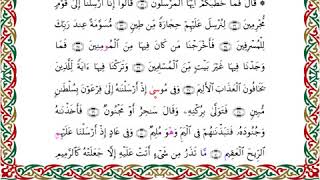 ۞ قَالَ فَمَا خَطْبُكُمْ أَيُّهَا الْمُرْسَلُونَ ۝ قَالُوا إِنَّا أُرْسِلْنَا إِلَى قَوْمٍ
مُجْرِمِينَ ۝ لِنُرْسِلَ عَلَيْهِمْ حِجَارَةً مِنْ طِينٍ ۝ مُسَوَّمَةً عِنْدَ رَبِّكَ
لِلْمُسْرِفِينَ ۝ فَأَخْرَجْنَا مَنْ كَانَ فِيهَا مِنَ الْمُؤْمِنِينَ ۝ فَمَا
وَجَدْنَا فِيهَا غَيْرَ بَيْتٍ مِنَ الْمُسْلِمِينَ ۝ وَتَرَكْنَا فِيهَا آيَةً لِلَّذِينَ
يَخَافُونَ الْعَذَابَ الْأَلِيمَ ۝ وَفِي مُوسَى إِذْ أَرْسَلْنَاهُ إِلَى فِرْعَوْنَ بِسُلْطَانٍ
مُبِينٍ ۝ فَتَوَلَّى بِرُكْنِهِ وَقَالَ سَاحِرٌ أَوْ مَجْنُونٌ ۝ فَأَخَذْنَاهُ
وَجُنُودَهُ فَنَبَذْنَاهُمْ فِي الْيَمِّ وَهُوَ مُلِيمٌ ۝ وَفِي عَادٍ إِذْ أَرْسَلْنَا عَلَيْهِمُ
الرِّيحَ الْعَقِيمَ ۝ مَا تَذَرُ مِنْ شَيْءٍ أَتَتْ عَلَيْهِ إِلَّا جَعَلَتْهُ كَالرَّمِيمِ